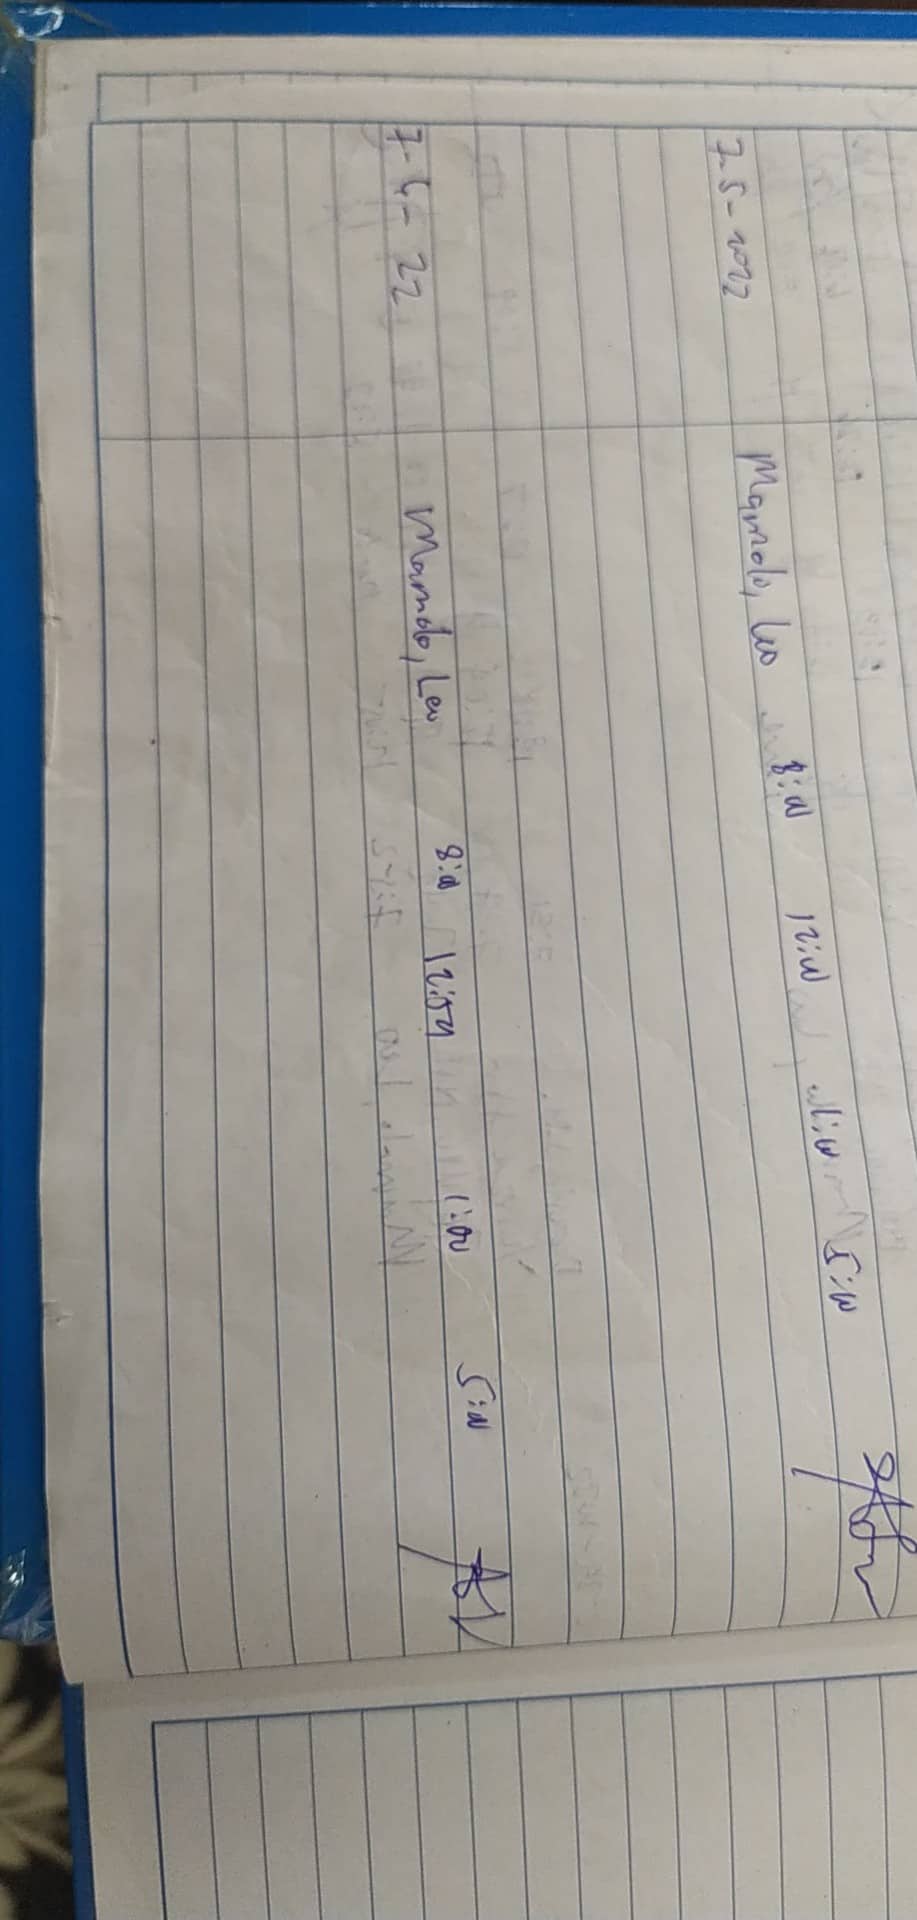 7-5-2022 Mamdo, Leo 8:00 12:00 1:00 5:00
7-6-22 Mamdo, Leo 8:00 12:00 1:00 5:00